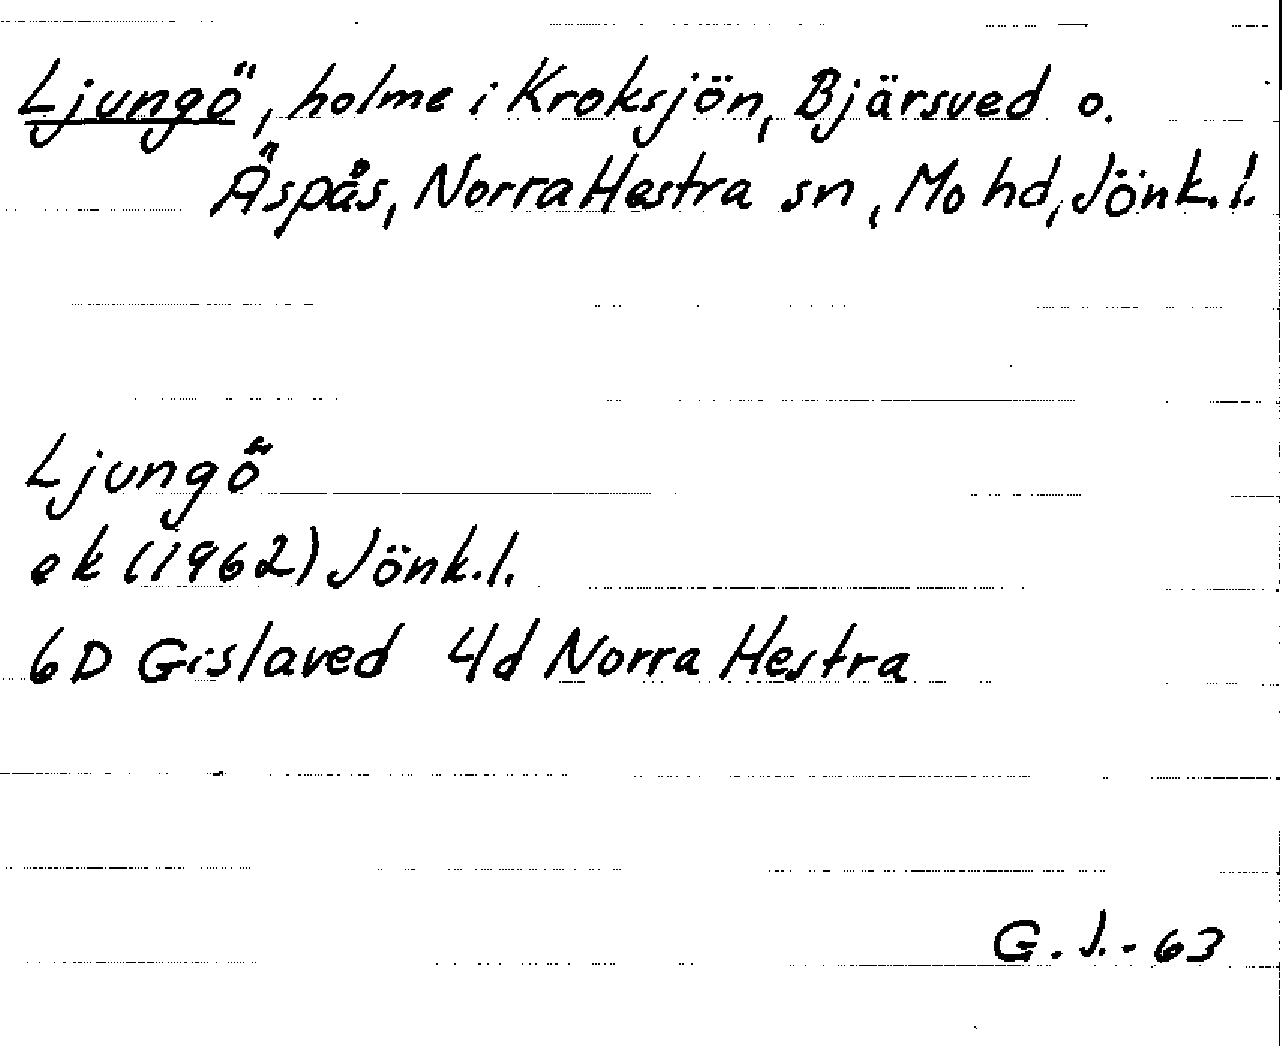 Ljungö, holme i Kroksjön, Bjärsved o.
Äspås, Norra Hestra sn, Mo hd, Jönk.l.
Ljungö
ek (1962) Jönk.l.
6D Gislaved 4d Norra Hestra
G.J.-63